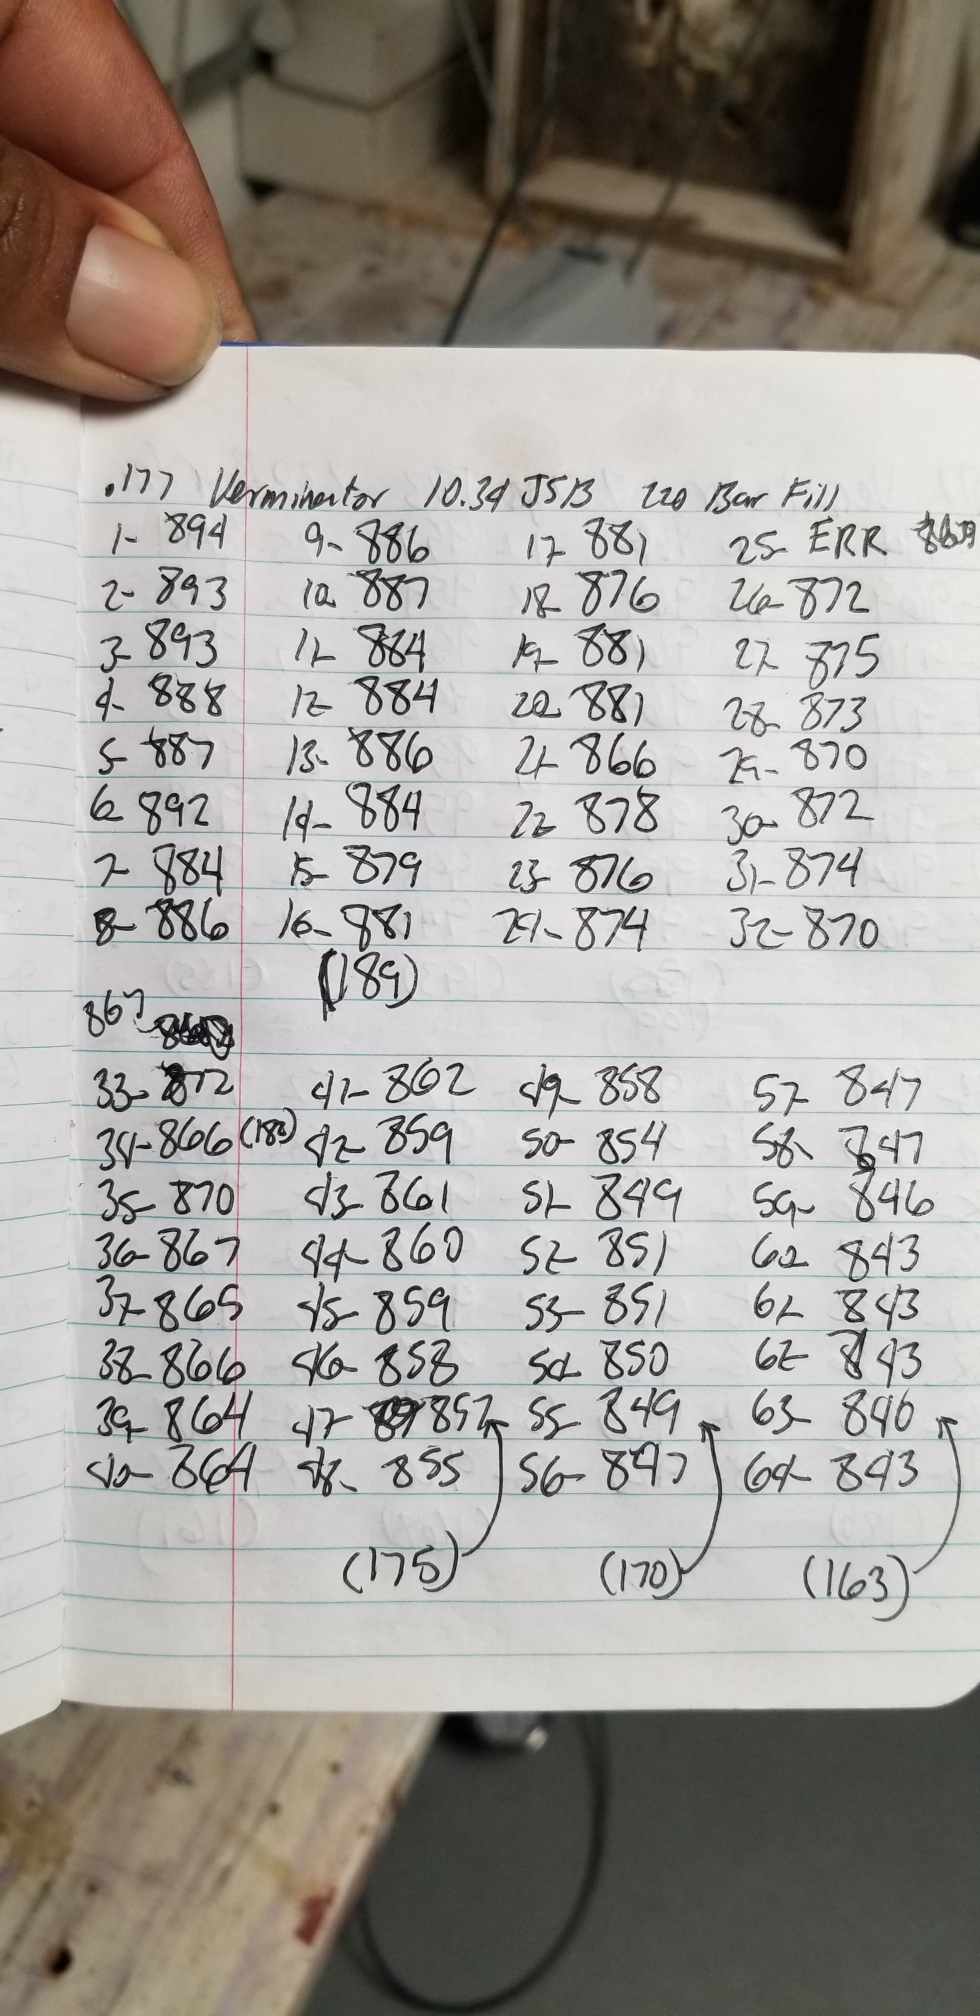 .177 Verminator 10.34 JSB 220 Bar Fill
1- 894 9- 886 17- 881 25- ERR
2- 893 10- 887 18- 876 26- 872
3- 893 11- 884 19- 881 27- 875
4- 888 12- 884 20- 881 28- 873
5- 887 13- 886 21- 866 29- 870
6- 892 14- 884 22- 878 30- 872
7- 884 15- 879 23- 876 31- 874
8- 886 16- 881 24- 874 32- 870
(189)
867
33- 872 41- 862 49- 858 57- 847
34- 866 (183) 42- 859 50- 854 58- 847
35- 870 43- 861 51- 849 59- 846
36- 867 44- 860 52- 851 60- 843
37- 865 45- 859 53- 851 61- 843
38- 866 46- 858 54- 850 62- 843
39- 864 47- 857 55- 849 63- 840
40- 864 48- 855 56- 847 64- 843
(175) (170) (163)